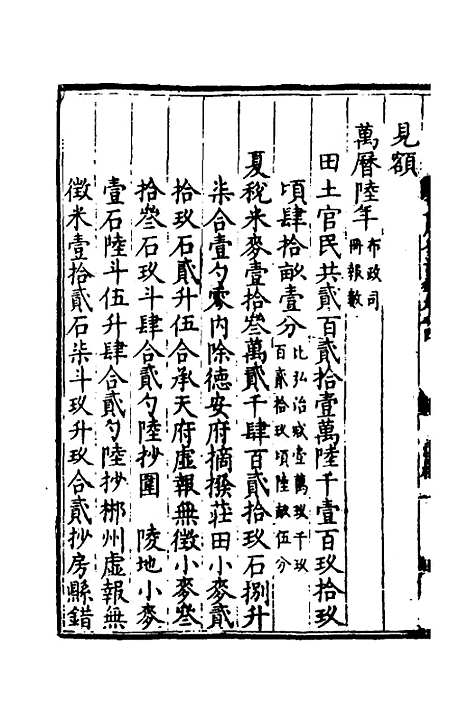 見額
萬曆陸年布政司冊報數
田土官民共貳百貳拾壹萬陸千壹百玖拾玖
頃肆拾畝壹分比弘治減壹萬玖千玖百貳拾玖頃陸畝伍分
夏稅米麥壹拾叁萬貳千肆百貳拾玖石捌升
柒合壹勺零內除德安府摘撥莊田小麥貳
拾玖石貳升伍合承天府虛報無徵小麥叁
拾叁石玖斗肆合貳勺陸抄圍　陵地小麥
壹石陸斗伍升肆合貳勺陸抄郴州虛報無
徵米壹拾貳石柒斗玖升玖合貳抄房縣錯